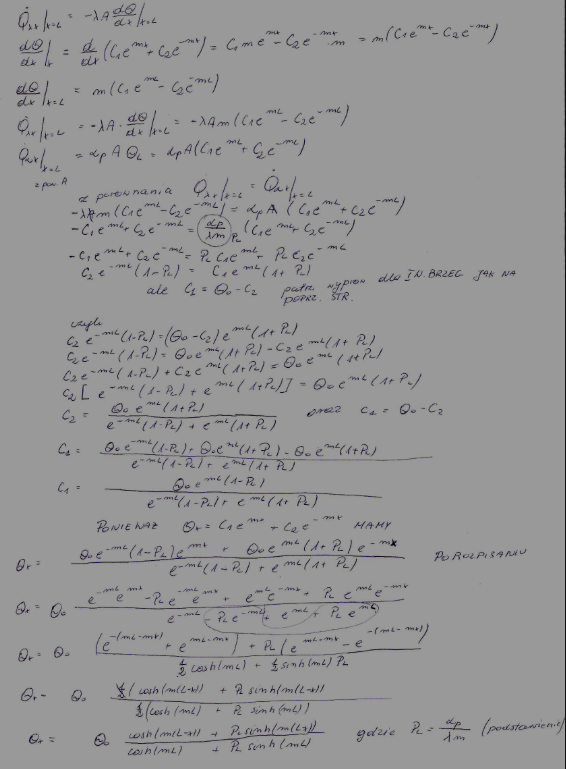 Q̇λx|x=L = -λA dΘ/dx|x=L
dΘ/dx|x = d/dx (C1e^mx + C2e^-mx) = C1me^mx - C2e^-mx·m = m(C1e^mx - C2e^-mx)
dΘ/dx|x=L = m(C1e^mL - C2e^-mL)
Q̇λx|x=L = -λA · dΘ/dx|x=L = -λAm(C1e^mL - C2e^-mL)
Q̇αx|x=L = αp A ΘL = αpA(C1e^mL + C2e^-mL)
z pow. A
z porównania Q̇λx|x=L = Q̇αx|x=L
-λAm(C1e^mL - C2e^-mL) = αp A (C1e^mL + C2e^-mL)
-C1e^mL + C2e^-mL = αp/λm PL (C1e^mL + C2e^-mL)
-C1e^mL + C2e^-mL = PL C1e^mL + PL C2e^-mL
C2e^-mL(1-PL) = C1e^mL(1+PL)
ale C1 = Θ0 - C2 patrz wypron dla IN. BRZEG JAK NA
POPRZ. STR.
czyli
C2e^-mL(1-PL) = (Θ0 - C2)e^mL(1+PL)
C2e^-mL(1-PL) = Θ0e^mL(1+PL) - C2e^mL(1+PL)
C2e^-mL(1-PL) + C2e^mL(1+PL) = Θ0e^mL(1+PL)
C2[e^-mL(1-PL) + e^mL(1+PL)] = Θ0e^mL(1+PL)
C2 = Θ0e^mL(1+PL) / e^-mL(1-PL) + e^mL(1+PL) oraz C1 = Θ0 - C2
C1 = Θ0e^-mL(1-PL) + Θ0e^mL(1+PL) - Θ0e^mL(1+PL) / e^-mL(1-PL) + e^mL(1+PL)
C1 = Θ0e^-mL(1-PL) / e^-mL(1-PL) + e^mL(1+PL)
PONIEWAŻ Θx = C1e^mx + C2e^-mx MAMY
Θx = Θ0e^-mL(1-PL)e^mx + Θ0e^mL(1+PL)e^-mx / e^-mL(1-PL) + e^mL(1+PL) PO ROZPISANIU
Θx = Θ0 e^-mL e^mx - PLe^-mL e^mx + e^mL e^-mx + PL e^mL e^-mx / e^-mL - PLe^-mL + e^mL + PL e^mL
Θx = Θ0 (e^-(mL-mx) + e^mL-mx) + PL(e^mL-mx - e^-(mL-mx)) / ½cosh(mL) + ½sinh(mL)PL
Θx = Θ0 ½(cosh(m(L-x)) + PL sinh(m(L-x))) / ½(cosh(mL) + PL sinh(mL))
Θx = Θ0 cosh(m(L-x)) + PL sinh(m(L-x)) / cosh(mL) + PL sinh(mL) gdzie PL = αp/λm (podstawienie)